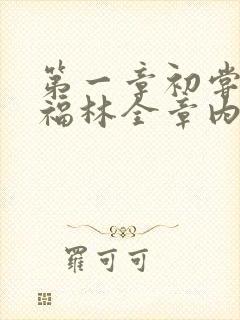 第一章初尝
福林全章内
罗可可